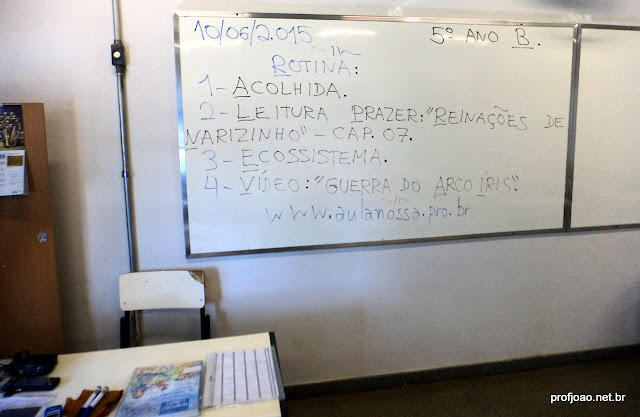 10/06/2.015 5º ANO B.
ROTINA:
1- ACOLHIDA.
2- LEITURA PRAZER: "REINAÇÕES DE
NARIZINHO" - CAP. 07.
3- ECOSSISTEMA.
4- VÍDEO: "GUERRA DO ARCO ÍRIS".
www.aulanossa.pro.br
profjoao.net.br